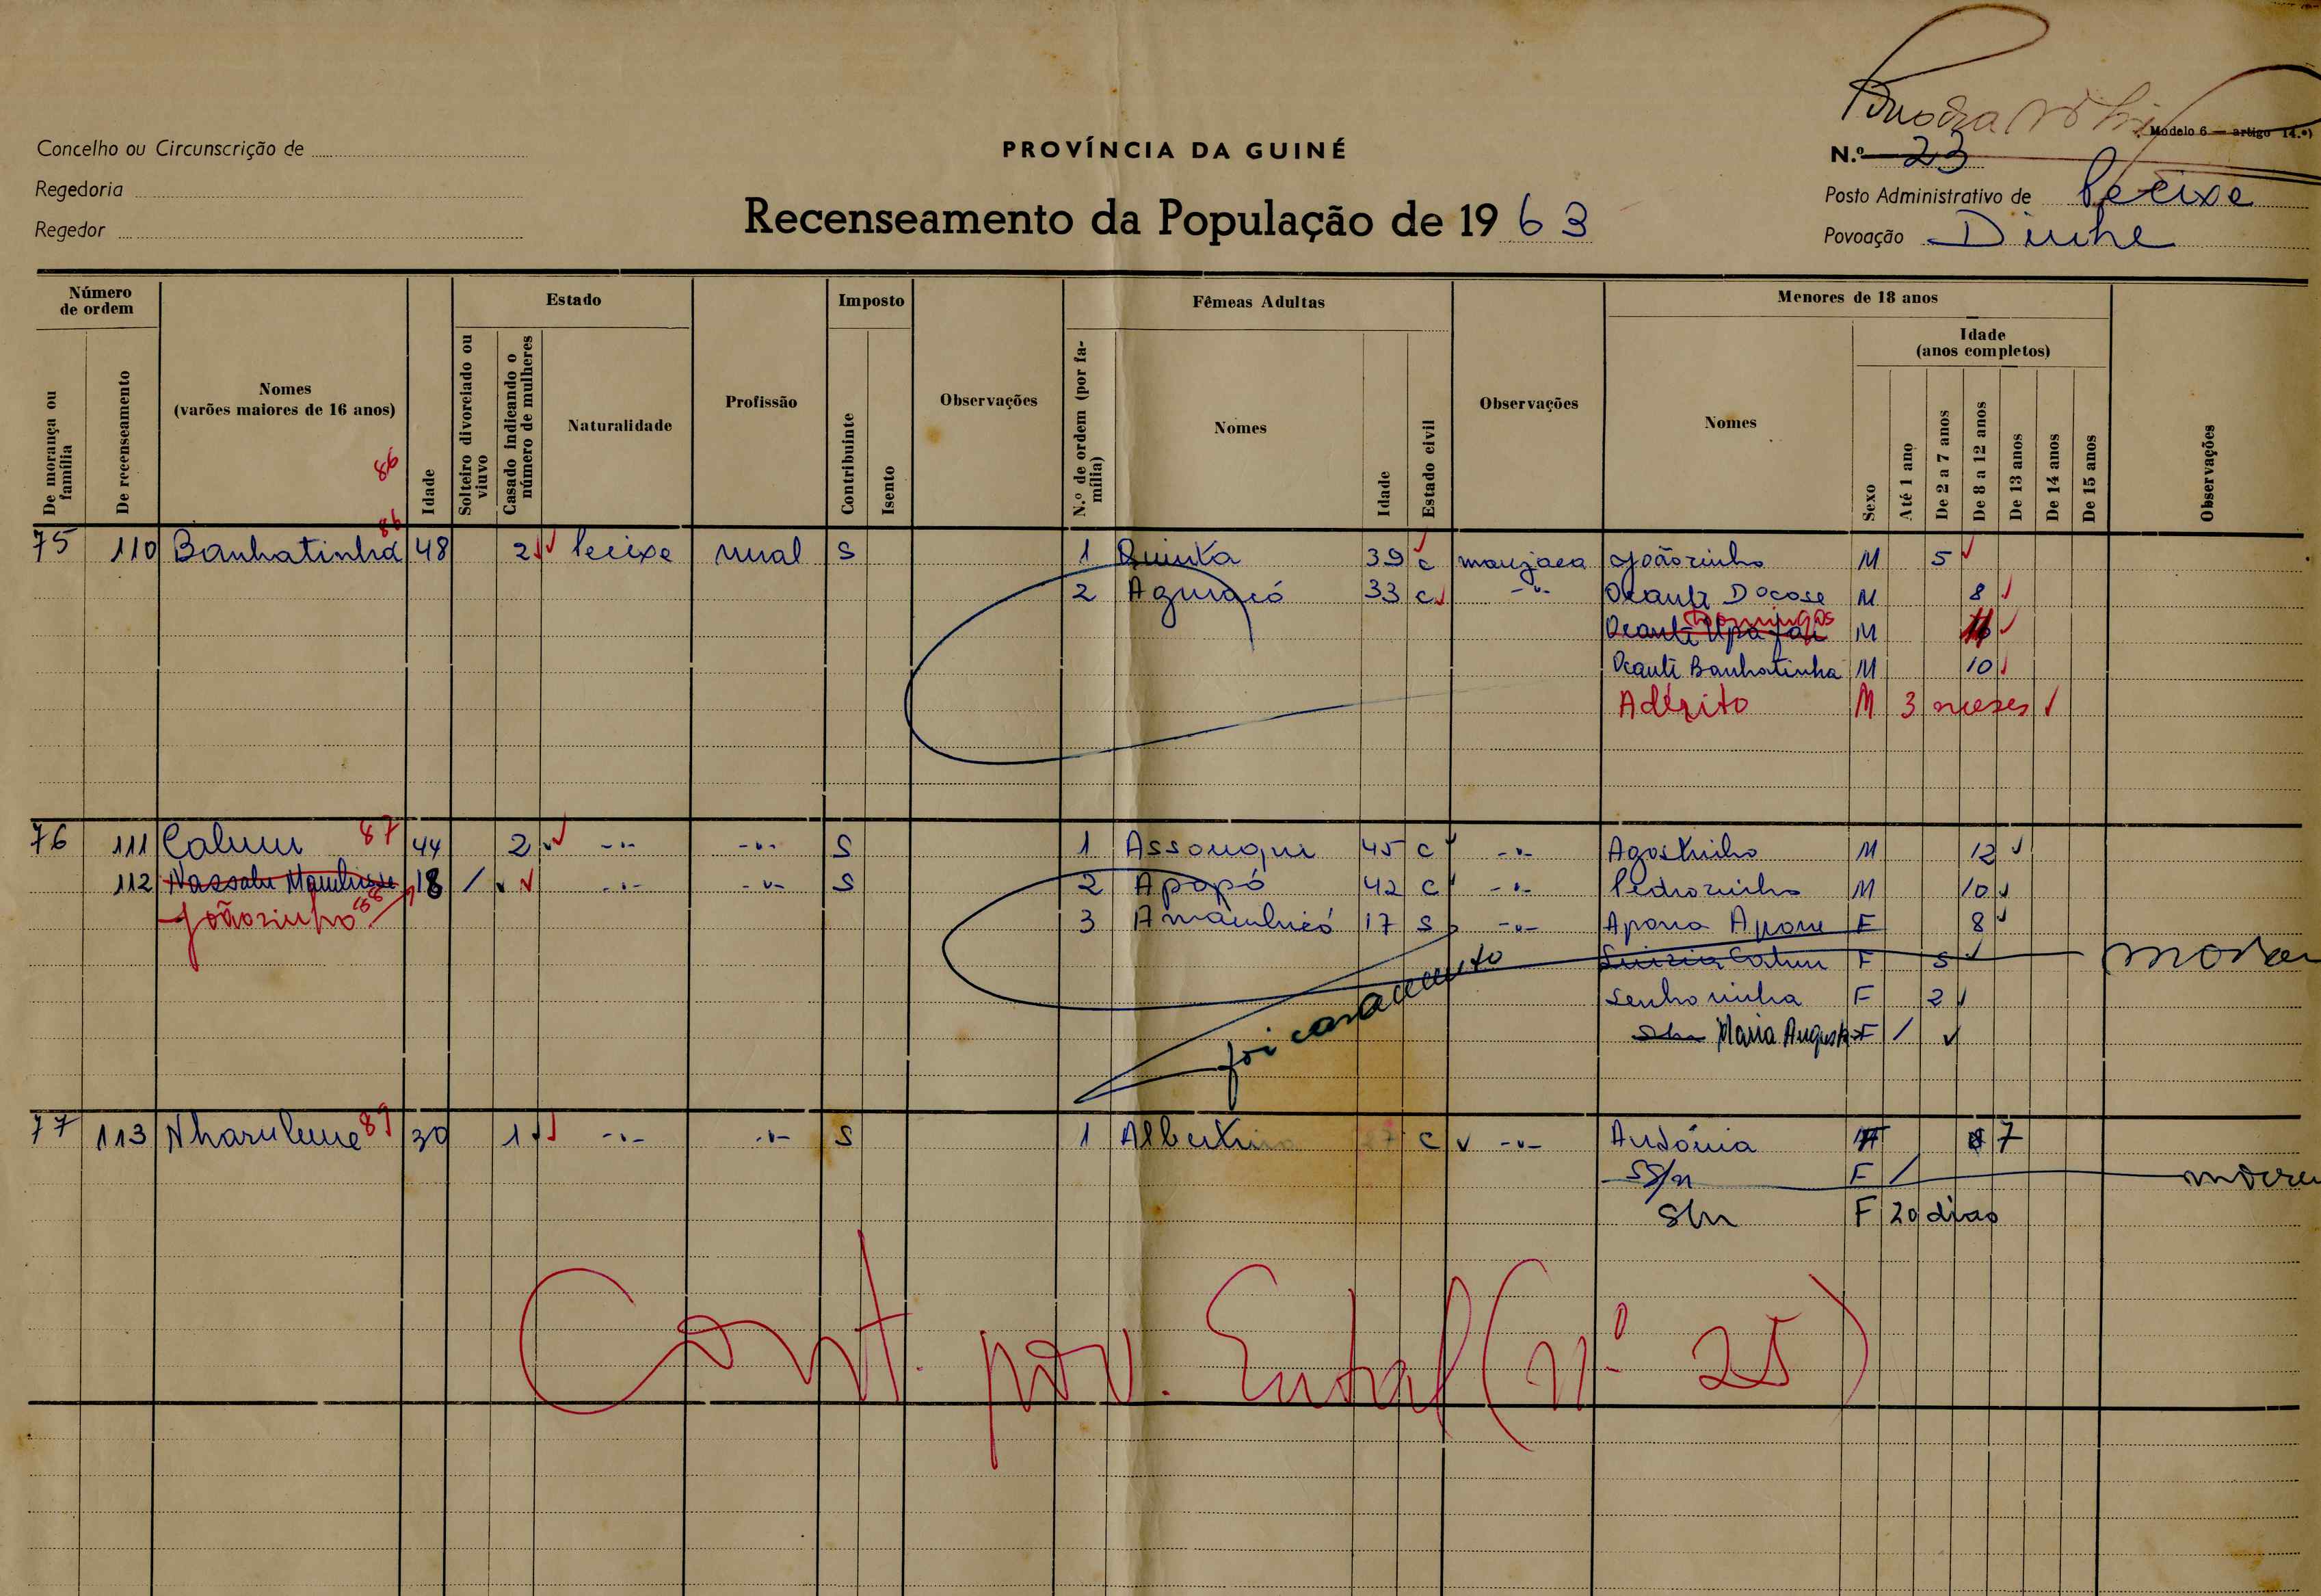 Modelo 6 — artigo 14.º)
Concelho ou Circunscrição de
PROVÍNCIA DA GUINÉ
N.º 23
Regedoria
Posto Administrativo de Pecixe
Recenseamento da População de 1963
Regedor
Povoação
Número de ordem
Estado
Imposto
Fêmeas Adultas
Menores de 18 anos
De morança ou família
De recenseamento
Nomes (varões maiores de 16 anos)
86
Idade
Solteiro divorciado ou viuvo
Casado indicando o número de mulheres
Naturalidade
Profissão
Contribuinte
Isento
Observações
N.º de ordem (por família)
Nomes
Idade
Estado civil
Observações
Nomes
Sexo
Idade (anos completos)
Até 1 ano
De 2 a 7 anos
De 8 a 12 anos
De 13 anos
De 14 anos
De 15 anos
Observações
75 110 Banhatinhá 86 48 2 Pecixe rural S 1 Quinta 39 c manjaca Joãozinho M 5
2 33 c -"- Ocante Docose M 8
Ocante Domingas M
Ocante Banhatinha M 10
Adérito M 3 meses
76 111 Catum 87 44 2 -"- -"- S 1 45 c -"- Agostinho M 12
112 18 / -"- -"- S 2 Apopó 42 c -"- Pedrozinho M 10
Joãozinho 88 3 17 s -"- F 8
Catum F 5
Senhorinha F 2
foi casamento
s/n Maria Augusta F /
77 113 89 30 1 -"- -"- S 1 Albertina c -"- Antónia F 7
s/n F /
s/n F 20 dias
Cont. pov. (nº 25)